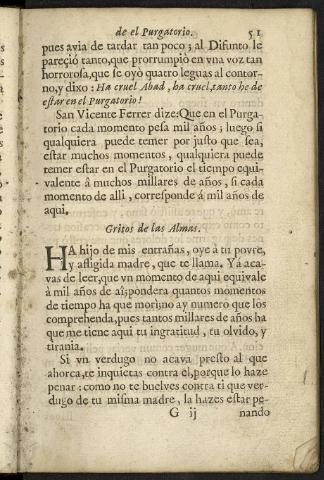 de el Purgatorio. 51
pues avia de tardar tan poco; al Difunto le
pareciò tanto, que prorrumpiò en vna voz tan
horrorosa, que se oyò quatro leguas al contor-
no, y dixo: Ha cruel Abad, ha cruel, tanto he de
estar en el Purgatorio!
San Vicente Ferrer dize: Que en el Purga-
torio cada momento pesa mil años; luego si
qualquiera puede temer por justo que sea,
estar muchos momentos, qualquiera puede
temer estar en el Purgatorio el tiempo equi-
valente â muchos millares de años, si cada
momento de alli, corresponde á mil años de
aqui.
Gritos de las Almas.
HA hijo de mis entrañas, oye à tu povre,
y afligida madre, que te llama. Yá aca-
vas de leer, que vn momento de aqui equivale
à mil años de aì; pondera quantos momentos
de tiempo ha que morì; no ay numero que los
comprehenda, pues tantos millares de años ha
que me tiene aqui tu ingratitud, tu olvido, y
tirania.
Si vn verdugo no acava presto al que
ahorca, te inquietas contra el, porque lo haze
penar: como no te buelves contra ti que ver-
dugo de tu misma madre, la hazes estar pe-
G ij nando